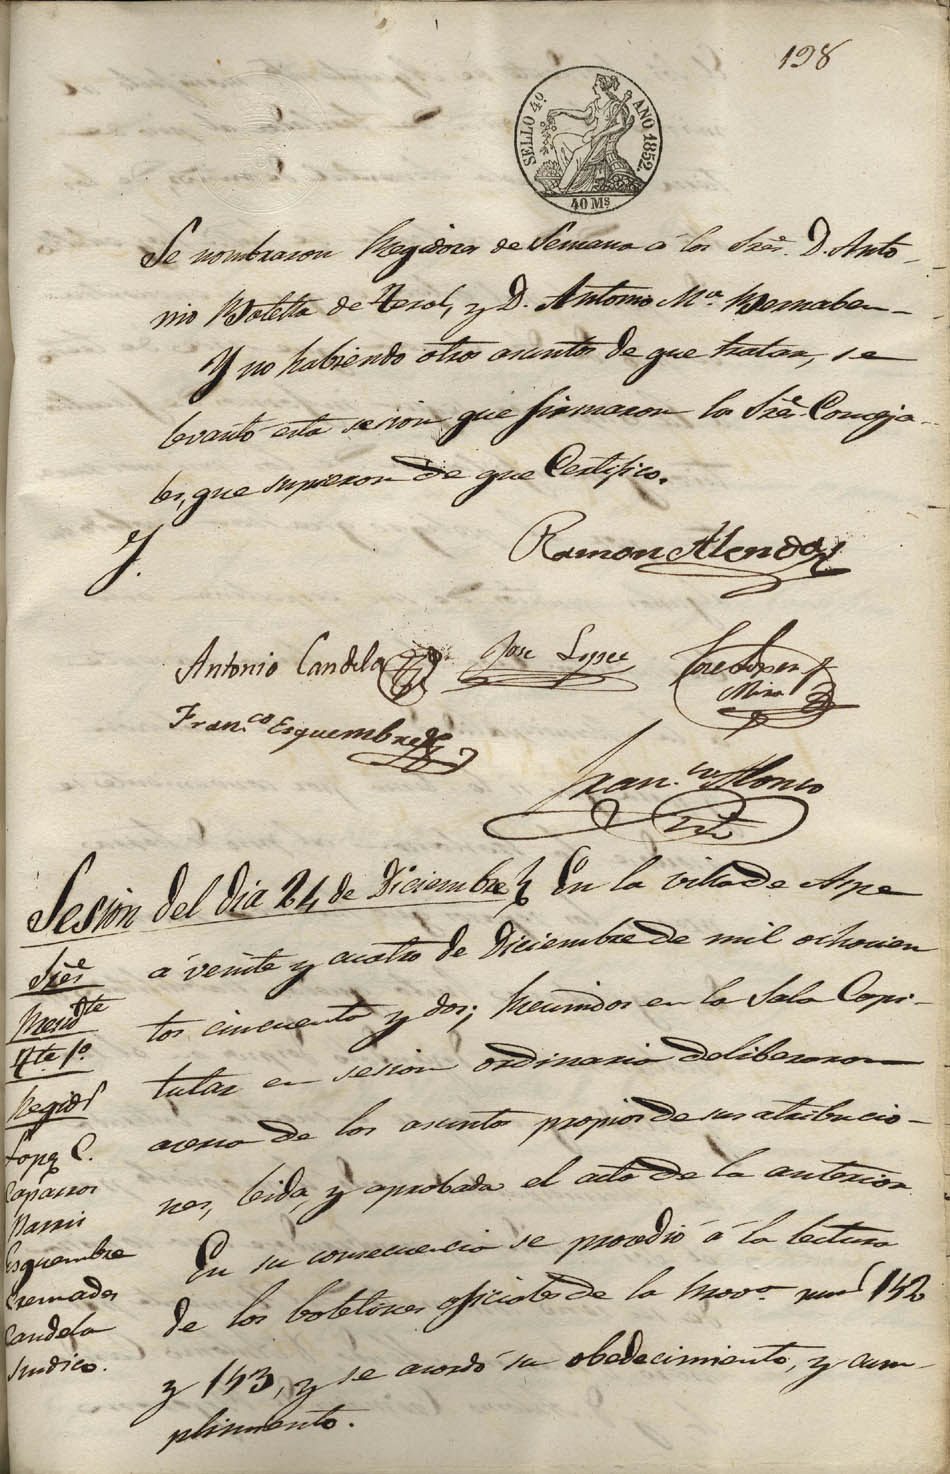 198
SELLO 4º AÑO 1852.
40 Ms
Se nombraron Regidores de Semana á los Sres. D. Anto-
nio Botella de Terol, y D. Antonio Mª. Bernabeu
Y no habiendo otros asuntos de que tratar, se
levantó esta sesion que firmaron los Sres. Conceja-
les, que supieron de que Certifico.
Ramon Alenda
Antonio Candela Jose Lopez Jose Lopez y
Mira
Fran.co Esquembre
Fran.co Alonso
Srio
Sesion del dia 24 de Diciembre En la villa de Aspe
á veinte y cuatro de Diciembre de mil ochocien
tos cincuenta y dos; Reunidos en la Sala Capi-
tular en sesion ordinaria deliberaron
acerca de los asuntos propios de sus atribucio-
nes, leida, y aprobada el acta de la anterior
En su consecuencia se procedió á la lectura
de los boletines oficiales de la Prova. num.s 152
y 153, y se acordó su obedecimiento, y cum-
plimiento.
Sres
Presidte
Tte. 1º
Regids
Lopz C.
Caparros
Pavia
Esquembre
Cremades
Candela
Sindico.